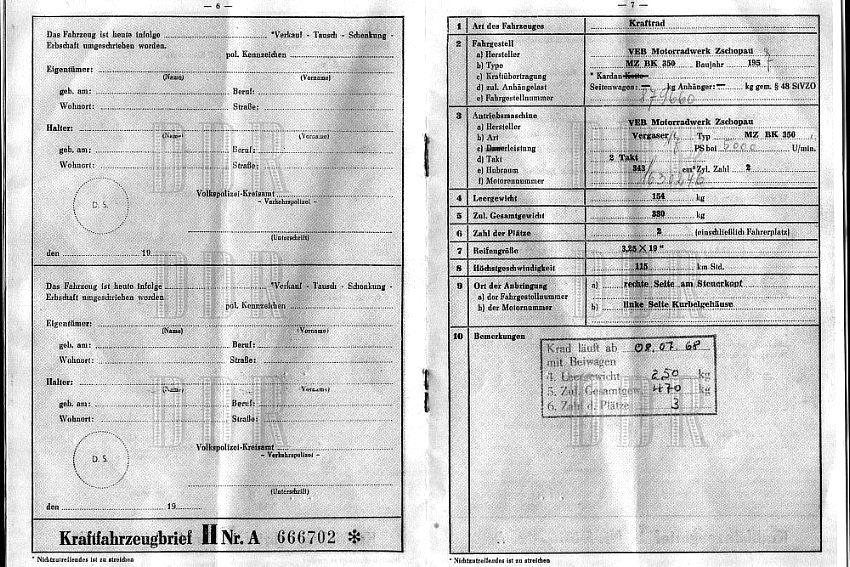 — 6 —
Das Fahrzeug ist heute infolge *Verkauf - Tausch - Schenkung -
Erbschaft umgeschrieben worden.
pol. Kennzeichen
Eigentümer:
(Name) (Vorname)
geb. am: Beruf:
Wohnort: Straße:
Halter:
(Name) (Vorname)
geb. am: Beruf:
Wohnort: Straße:
D. S.
Volkspolizei-Kreisamt
- Verkehrspolizei -
(Unterschrift)
den 19
Das Fahrzeug ist heute infolge *Verkauf - Tausch - Schenkung -
Erbschaft umgeschrieben worden
pol. Kennzeichen
Eigentümer:
(Name) (Vorname)
geb. am: Beruf:
Wohnort: Straße:
Halter:
(Name) (Vorname)
geb. am: Beruf:
Wohnort: Straße:
D. S.
Volkspolizei-Kreisamt
- Verkehrspolizei -
(Unterschrift)
den 19
Kraftfahrzeugbrief II Nr. A 666702 *
* Nichtzutreffendes ist zu streichen
DDR
DDR
DDR
— 7 —
1 Art des Fahrzeuges Kraftrad
2 Fahrgestell
a) Hersteller VEB Motorradwerk Zschopau
b) Type MZ BK 350 Baujahr 195
c) Kraftübertragung * Kardan
d) zul. Anhängelast Seitenwagen: — kg Anhänger: — kg gem. § 48 StVZO
e) Fahrgestellnummer 879660
3 Antriebsmaschine
a) Hersteller VEB Motorradwerk Zschopau
b) Art Vergaser Typ MZ BK 350
c) Dauerleistung PS bei 5000 U/min.
d) Takt 2 Takt
e) Hubraum 343 cm³ Zyl. Zahl 2
f) Motornummer 1630246
4 Leergewicht 154 kg
5 Zul. Gesamtgewicht 330 kg
6 Zahl der Plätze 2 (einschließlich Fahrerplatz)
7 Reifengröße 3,25 X 19 "
8 Höchstgeschwindigkeit 115 km Std.
9 Ort der Anbringung a) rechte Seite am Steuerkopf
a) der Fahrgestellnummer
b) der Motornummer b) linke Seite Kurbelgehäuse
10 Bemerkungen
Krad läuft ab 08.07.68
mit Beiwagen
4. Leergewicht 250 kg
5. Zul. Gesamtgew. 470 kg
6. Zahl d. Plätze 3
DDR
DDR
DDR
* Nichtzutreffendes ist zu streichen